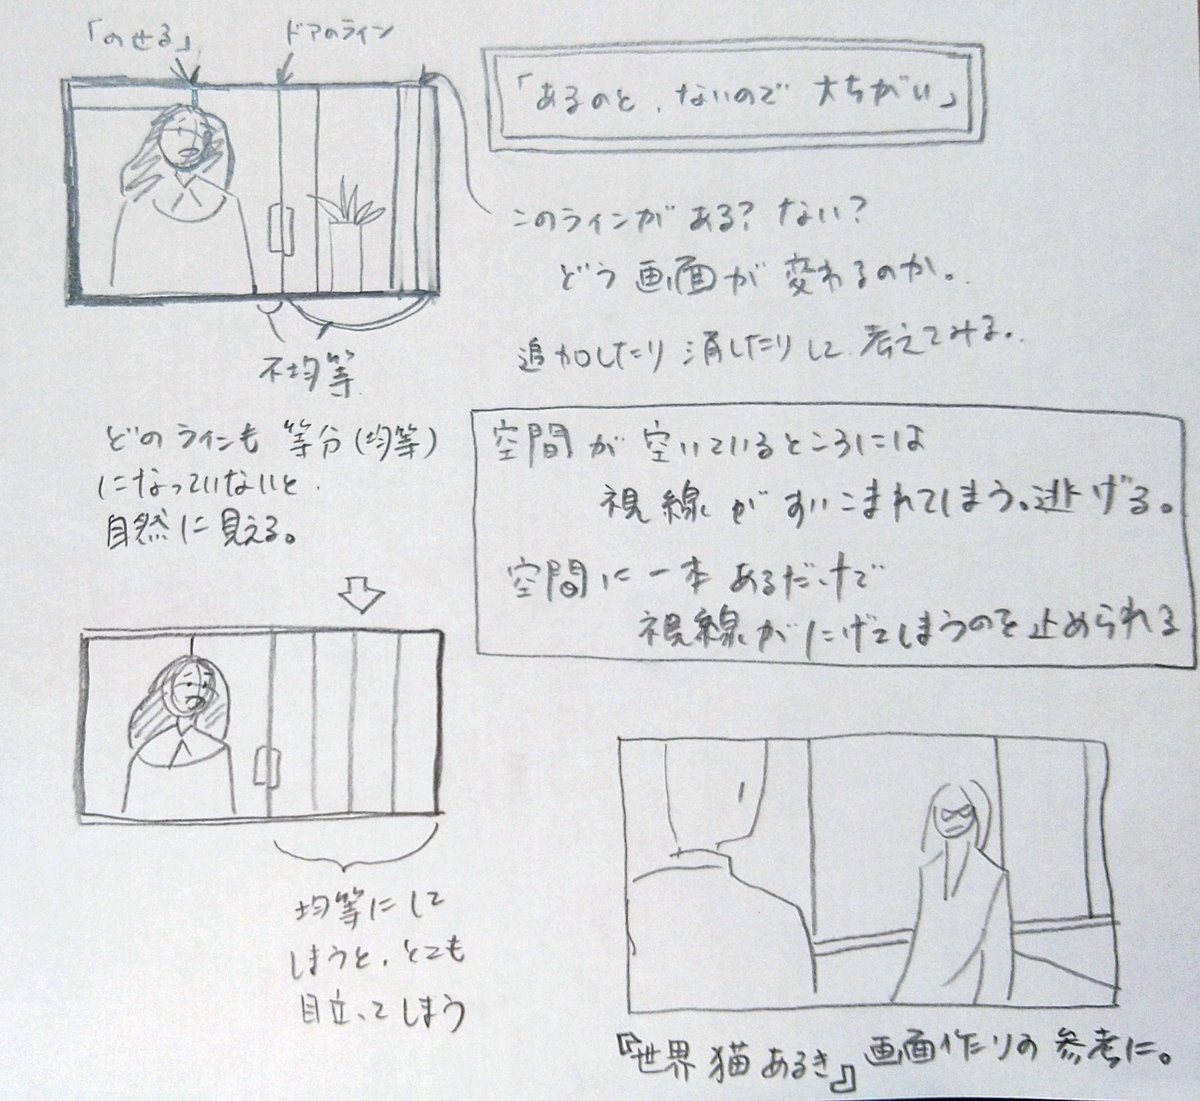 「のせる」
ドアのライン
「あるのと、ないので 大ちがい」
このラインが ある？ ない？
どう 画面が 変わるのか。
追加したり 消したりして 考えてみる。
不均等
どのラインも 等分(均等)
になっていないと
自然に見える。
空間が 空いているところには
視線が すいこまれてしまう。逃げる。
空間に 一本 あるだけで
視線が にげてしまうのを 止められる
均等にして
しまうと、とても
目立ってしまう
『世界 猫 あるき』 画面作りの 参考に。